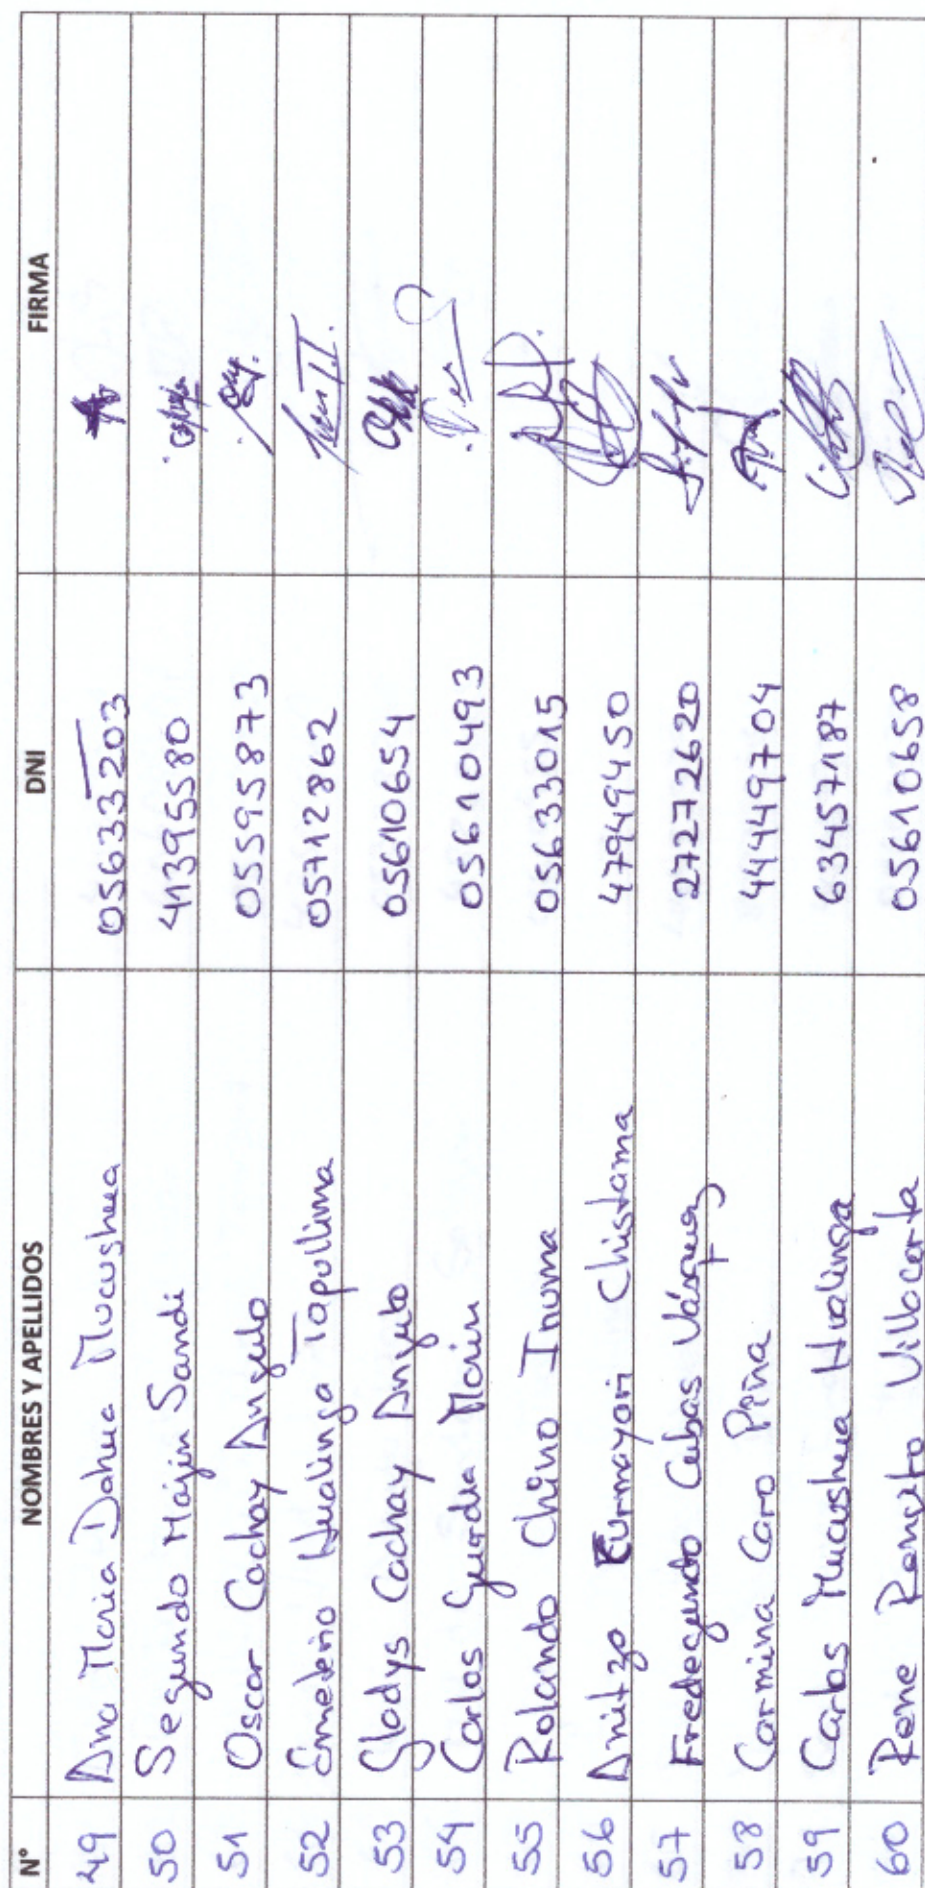 N° NOMBRES Y APELLIDOS DNI FIRMA
49 Ana Maria Dahua Mucushua 05633203
50 Segundo Majin Sandi 41395580
51 Oscar Cachay Angulo 05595873
52 Emeterio Hualinga Tapullima 05712862
53 Gladys Cachay Angulo 05610654
54 Carlos Guerra Marin 05610493
55 Rolando Chino Inuma 05633015
56 Anitzo Curmayori Chistama 47949450
57 Fredegundo Cubas Vásquez 27272620
58 Carmina Caro Piña 44449704
59 Carlos Mucushua Hualinga 63457187
60 Rene Renguto Villacorta 05610658